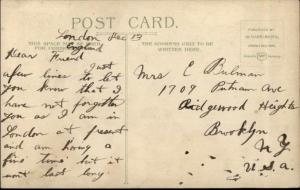 POST CARD.
London Dec 19
England
Dear Friend
Just
a few lines to let
you know that I
have not forgotten
you as I am in
London at present
and am having a
fine time but it
wont last long.
THE ADDRESS ONLY TO BE
WRITTEN HERE.
Mrs E Bulman
1709 Putnam Ave
Ridgewood Heights
Brooklyn
N.Y.
U.S.A.